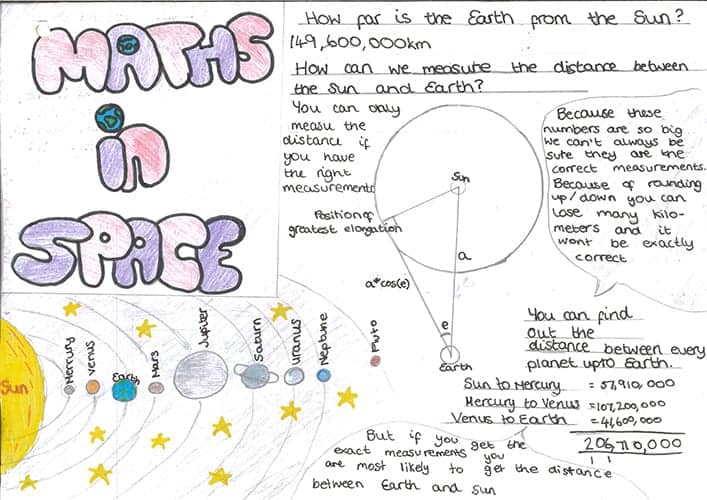 MATHS
in
SPACE
How far is the Earth from the Sun?
149,600,000km
How can we measure the distance between
the Sun and Earth?
You can only
measu the
distance if
you have
the right
measurements
Because these
numbers are so big
we can't always be
sure they are the
correct measurements.
Because of rounding
up/down you can
lose many kilo-
meters and it
wont be exactly
correct
Sun
Position of
greatest elongation
a
a*cos(e)
e
Earth
Sun
Mercury
Venus
Earth
Mars
Jupiter
Saturn
Uranus
Neptune
Pluto
You can find
out the
distance between every
planet upto Earth.
Sun to Mercury = 57,910,000
Mercury to Venus = 107,200,000
Venus to Earth = 41,600,000
206,710,000
1 1
But if you get the
exact measurements you
are most likely to get the distance
between Earth and Sun